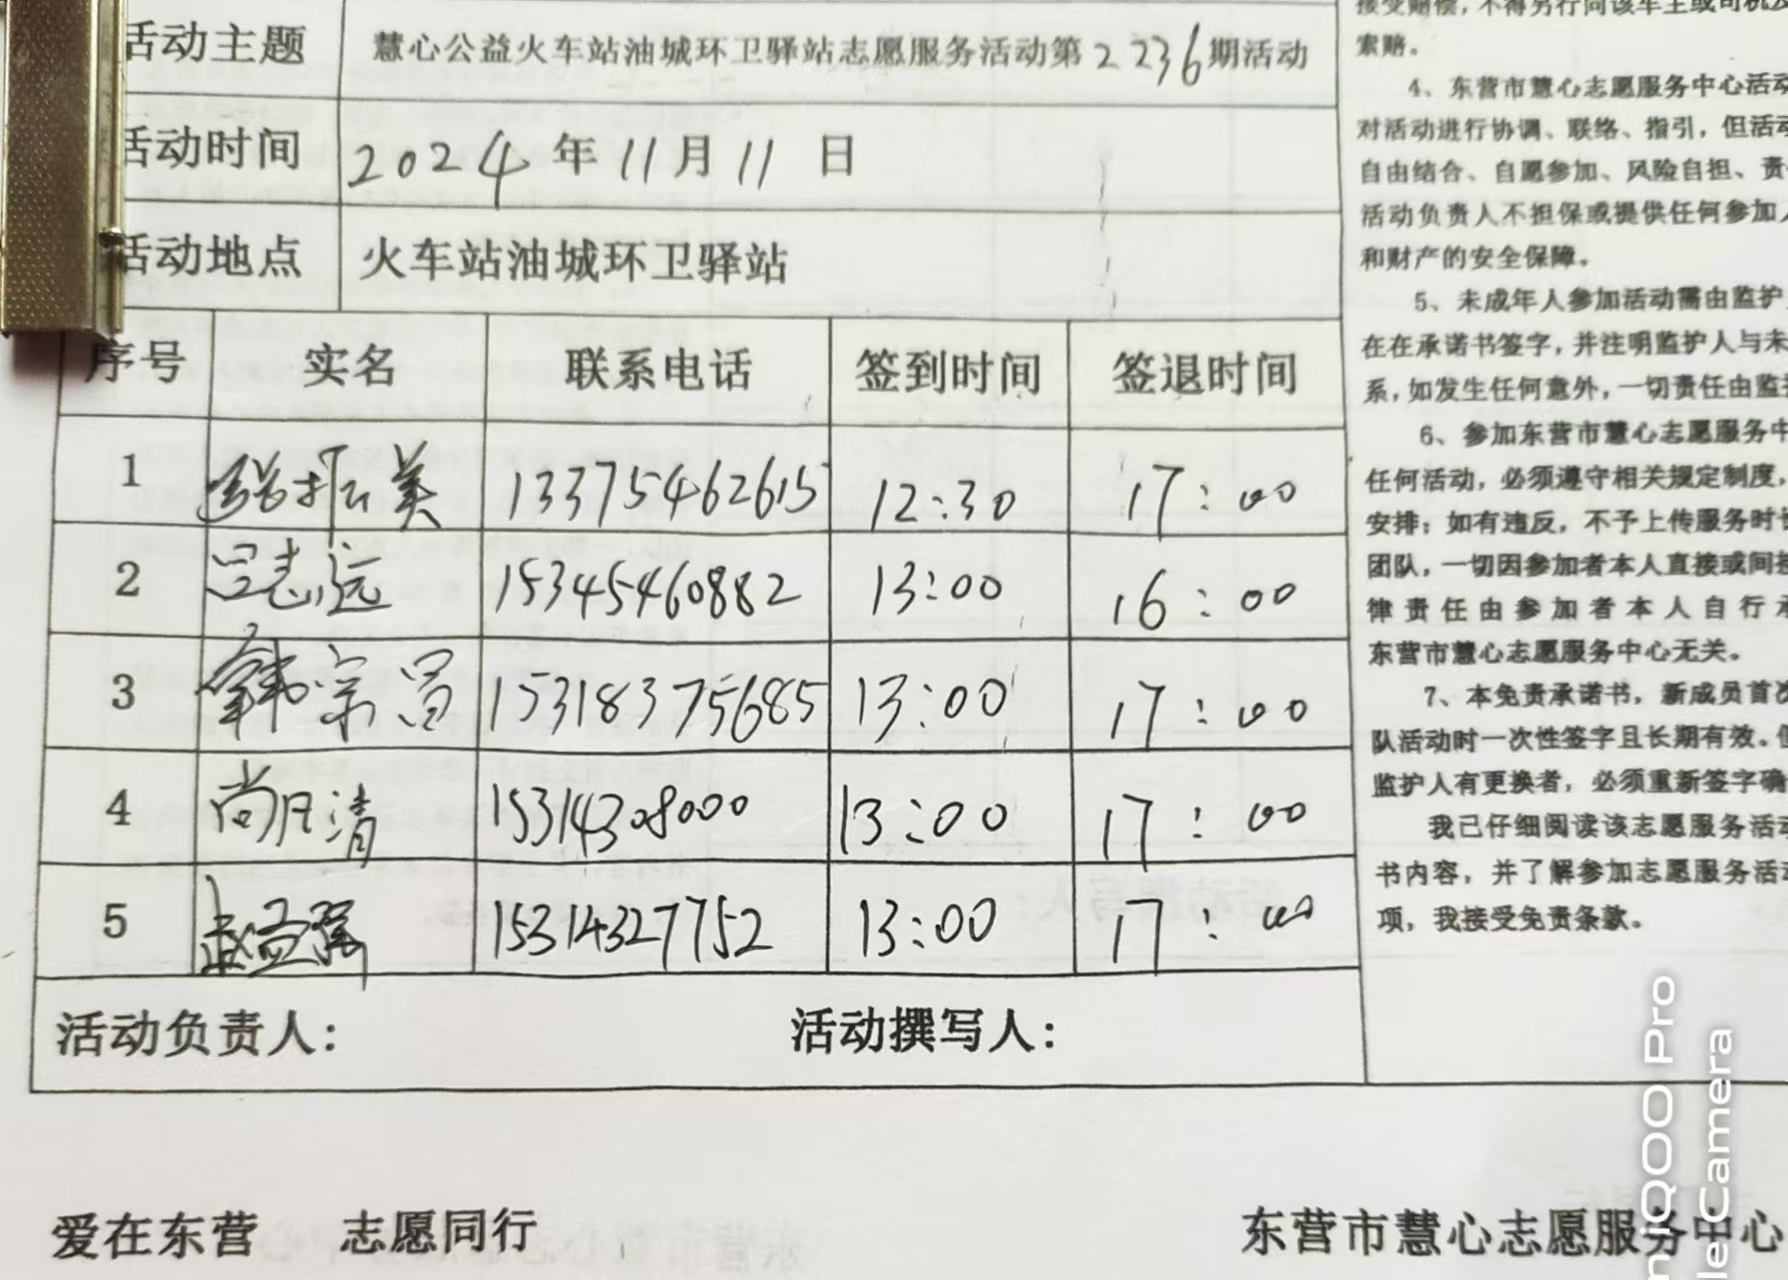 活动主题 慧心公益火车站油城环卫驿站志愿服务活动第2236期活动
活动时间 2024年11月11日
活动地点 火车站油城环卫驿站
序号 实名 联系电话 签到时间 签退时间
1 13375462615 12:30 17:00
2 吕志远 15345460882 13:00 16:00
3 韩宗昌 15318375685 13:00 17:00
4 尚月清 15314308000 13:00 17:00
5 赵益强 15314327752 13:00 17:00
活动负责人: 活动撰写人:
爱在东营 志愿同行
接受赔偿,不得另行向该车主或司机及
索赔。
4、东营市慧心志愿服务中心活动
对活动进行协调、联络、指引,但活动
自由结合、自愿参加、风险自担、责
活动负责人不担保或提供任何参加人
和财产的安全保障。
5、未成年人参加活动需由监护
在在承诺书签字,并注明监护人与未
系,如发生任何意外,一切责任由监护
6、参加东营市慧心志愿服务中
任何活动,必须遵守相关规定制度,
安排;如有违反,不予上传服务时长
团队,一切因参加者本人直接或间接
律责任由参加者本人自行承
东营市慧心志愿服务中心无关。
7、本免责承诺书,新成员首次
队活动时一次性签字且长期有效。但
监护人有更换者,必须重新签字确
我已仔细阅读该志愿服务活动
书内容,并了解参加志愿服务活动
项,我接受免责条款。
东营市慧心志愿服务中心
n iQOO Pro
le Camera